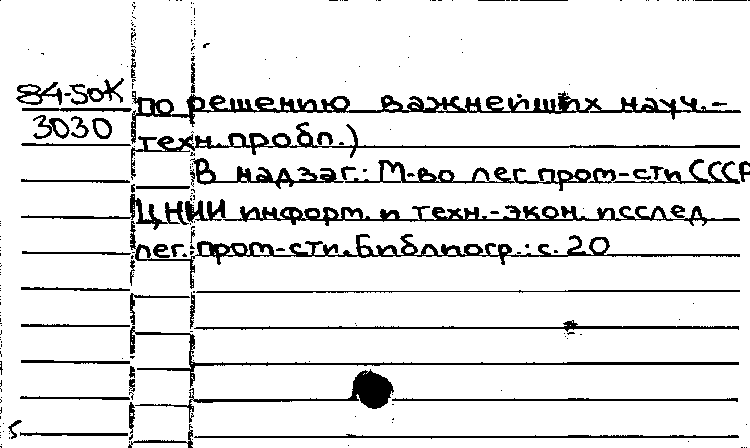 84-50к по решению важнейших науч.-
3030 техн. пробл.)
В надзаг.: М-во лег. пром-сти СССР
ЦНИИ информ. и техн.-экон. исслед
лег. пром-сти. Библиогр.: с. 20